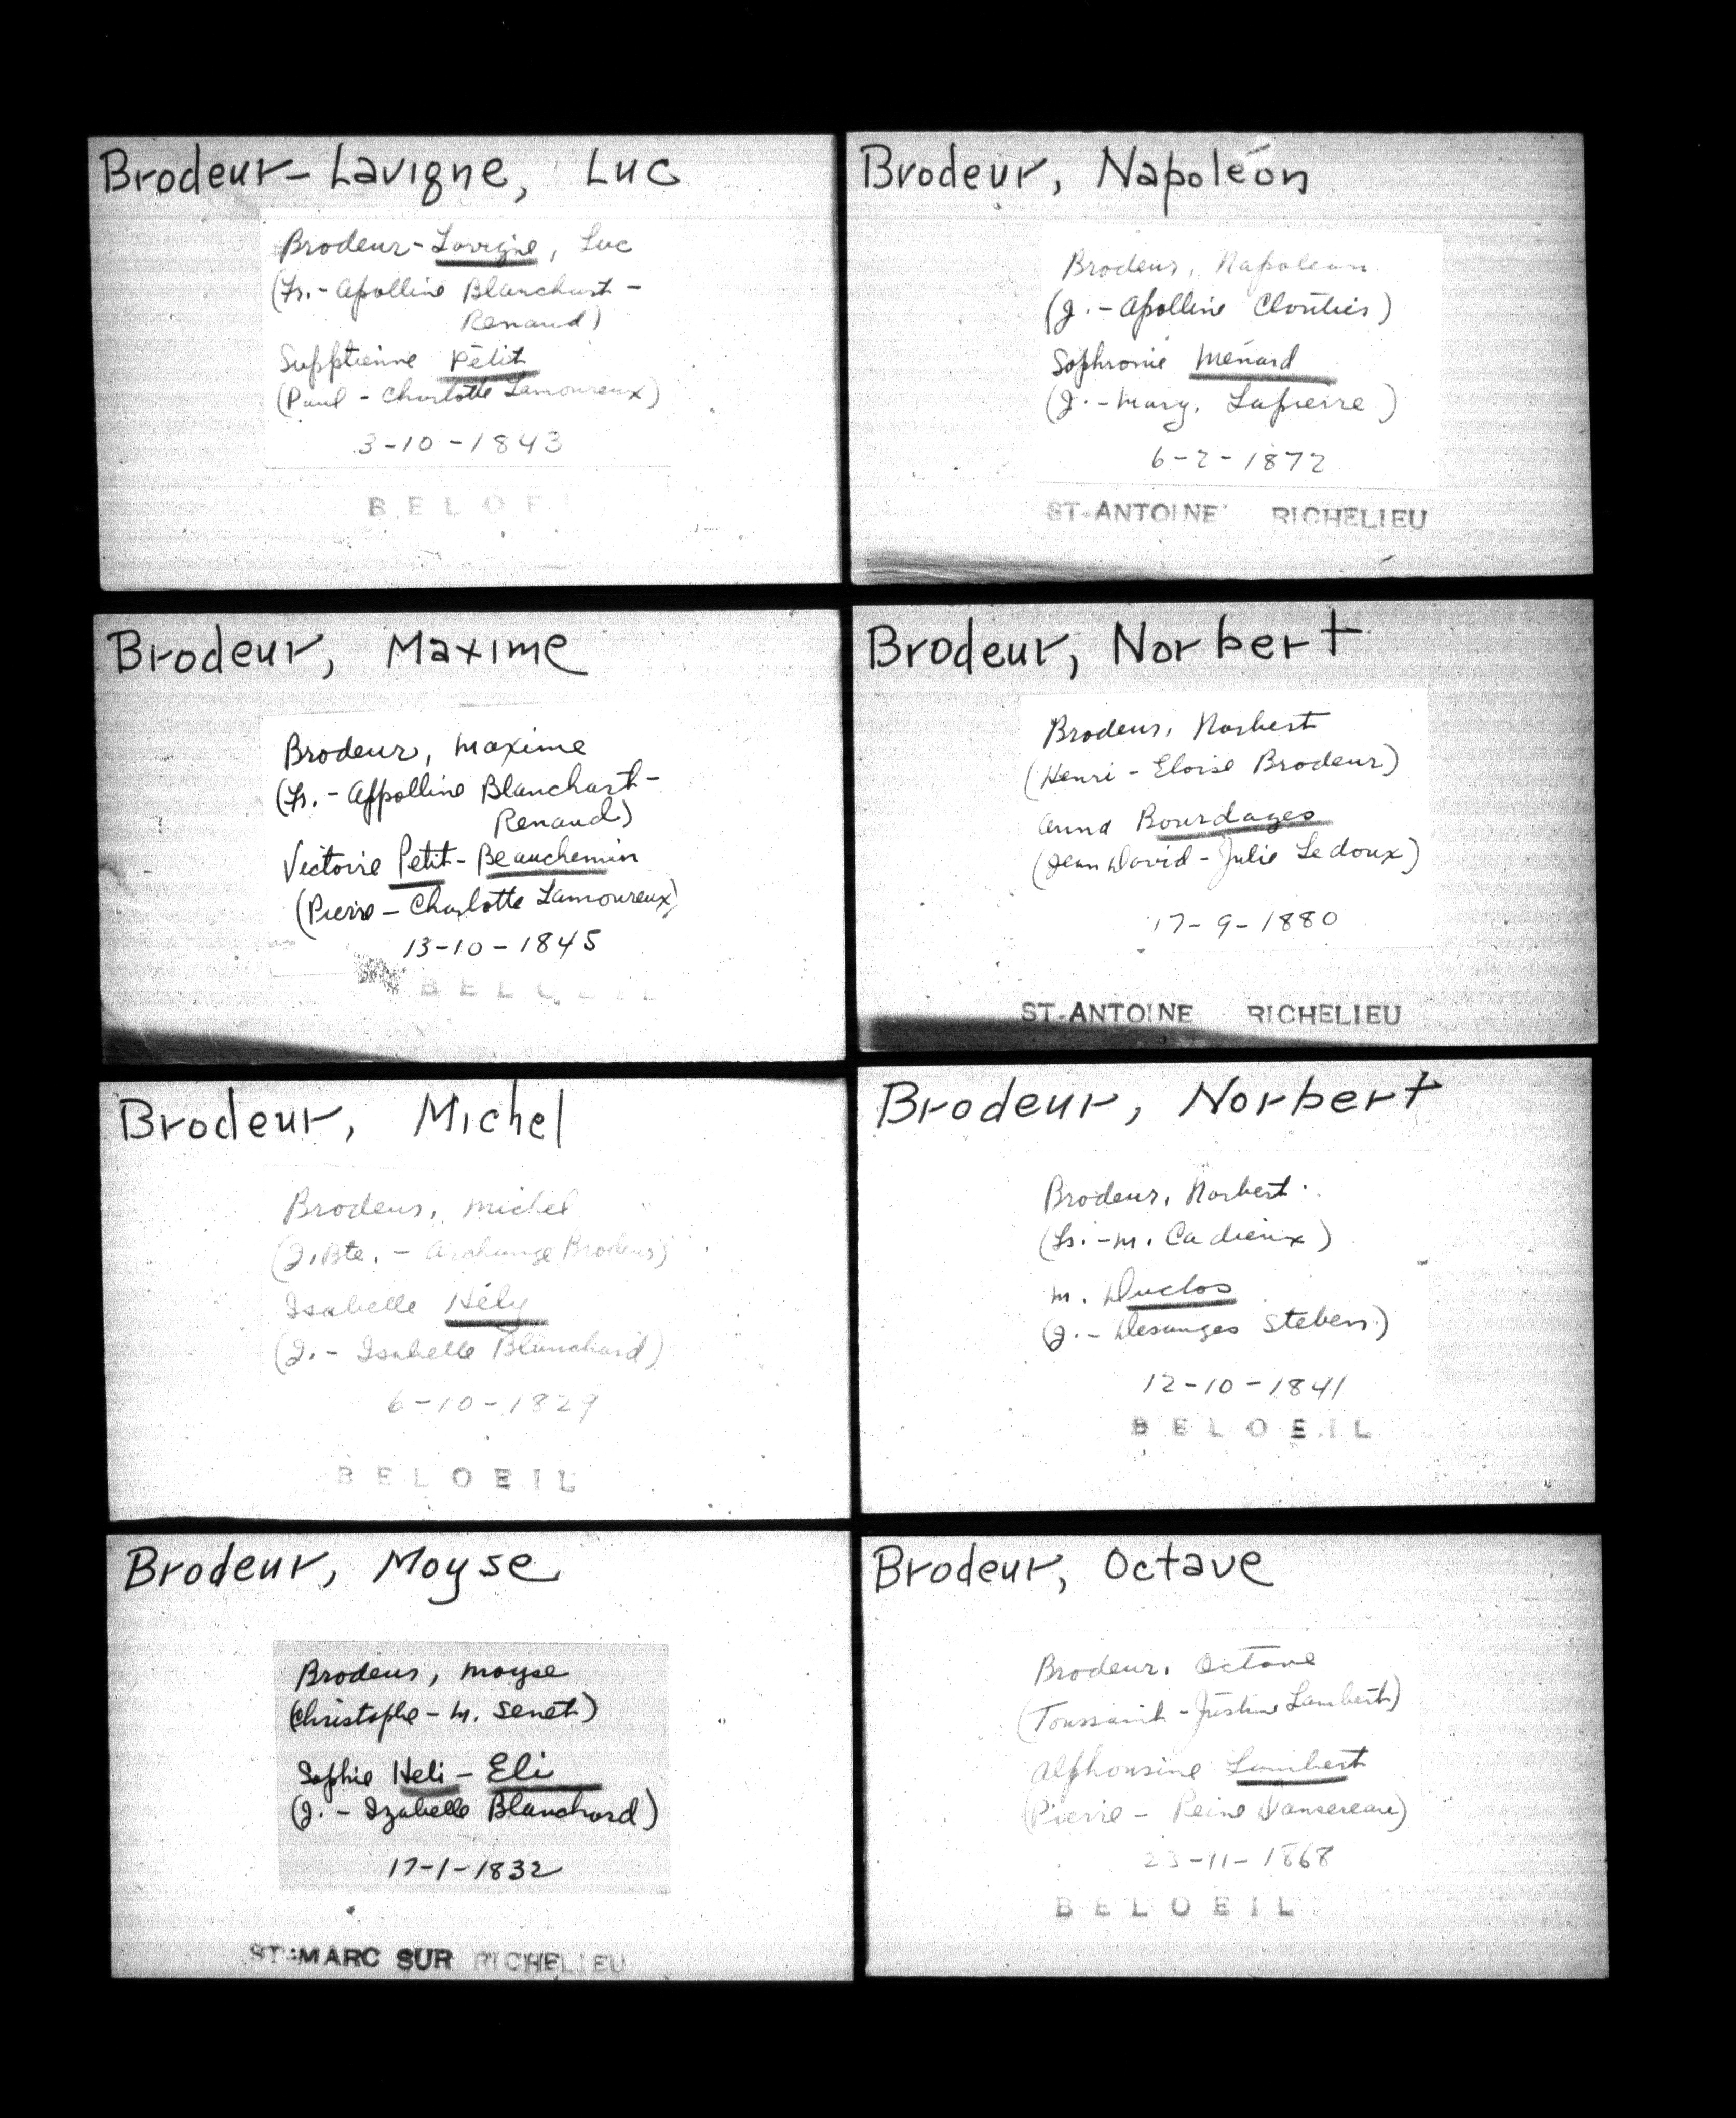 Brodeur-Lavigne, Luc
Brodeur-Lavigne, Luc
(Fr.-Apolline Blanchart-
Renaud)
Supptienne Petit
(Paul - Charlotte Lamoureux)
3-10-1843
BELOE
Brodeur, Maxime
Brodeur, Maxime
(Fr.-Appolline Blanchart-
Renaud)
Victoire Petit-Beauchemin
(Pierre - Charlotte Lamoureux)
13-10-1845
BELOEIL
Brodeur, Michel
Brodeur, Michel
(J.Bte. - Archange Brodeur)
Isabelle Hély
(J. - Isabelle Blanchard)
6-10-1829
BELOEIL
Brodeur, Moyse
Brodeur, Moyse
(Christophe - M. Senet)
Sophie Heli-Eli
(J. - Izabelle Blanchard)
17-1-1832
ST-MARC SUR RICHELIEU
Brodeur, Napoléon
Brodeur, Napoleon
(J.-Apolline Cloutier)
Sophronie Menard
(J.-Marg. Lapierre)
6-2-1872
ST-ANTOINE RICHELIEU
Brodeur, Norbert
Brodeur, Norbert
(Henri - Eloise Brodeur)
Anna Bourdages
(Jean David - Julie Ledoux)
17-9-1880
ST-ANTOINE RICHELIEU
Brodeur, Norbert
Brodeur, Norbert
(Fr.-M. Cadieux)
M. Duclos
(J.-Desanges Steben)
12-10-1841
BELOEIL
Brodeur, Octave
Brodeur, Octave
(Toussaint - Justine Lambert)
Alphonsine Lambert
(Pierre - Reine Dansereau)
23-11-1868
BELOEIL